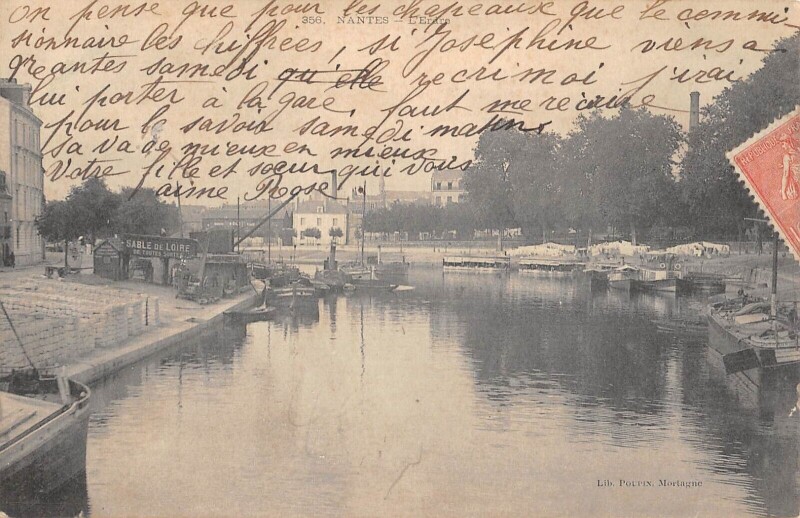 On pense que pour les chapeaux que le commi-
356. NANTES — L'Erdre
sionnaire les chiffrées, si Joséphine viens a
Nantes samedi qu'elle recrimoi j'irai
lui porter à la gare, faut me récrire
pour le savoir samedi matin
sa va de mieux en mieux
Votre fille et sœur qui vous
aime Rose
SABLE DE LOIRE
DE TOUTES SORTES
Lib. POUPIN, Mortagne